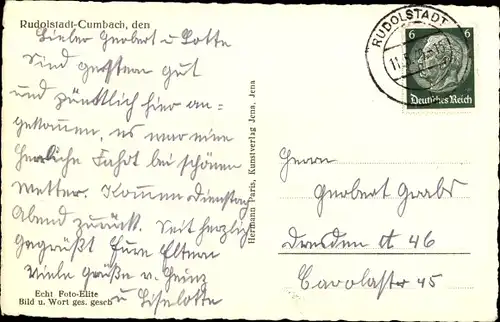 Rudolstadt-Cumbach, den
Lieber Gerbert u Lotte
Sind gestern gut
und pünktlich hier an-
gekommen, es war eine
Herrliche Fahrt bei schönen
Wetter. Kommen Dienstag
Abend zurück. Seid herzlich
gegrüßt Eure Eltern
Viele Grüße v. Heinz
u Liselotte
Echt Foto-Elite
Bild u. Wort ges. gesch
Hermann Paris, Kunstverlag Jena, Jena
RUDOLSTADT
6 6
Deutsches Reich
Herrn
Gerbert Grabs
Dresden A 46